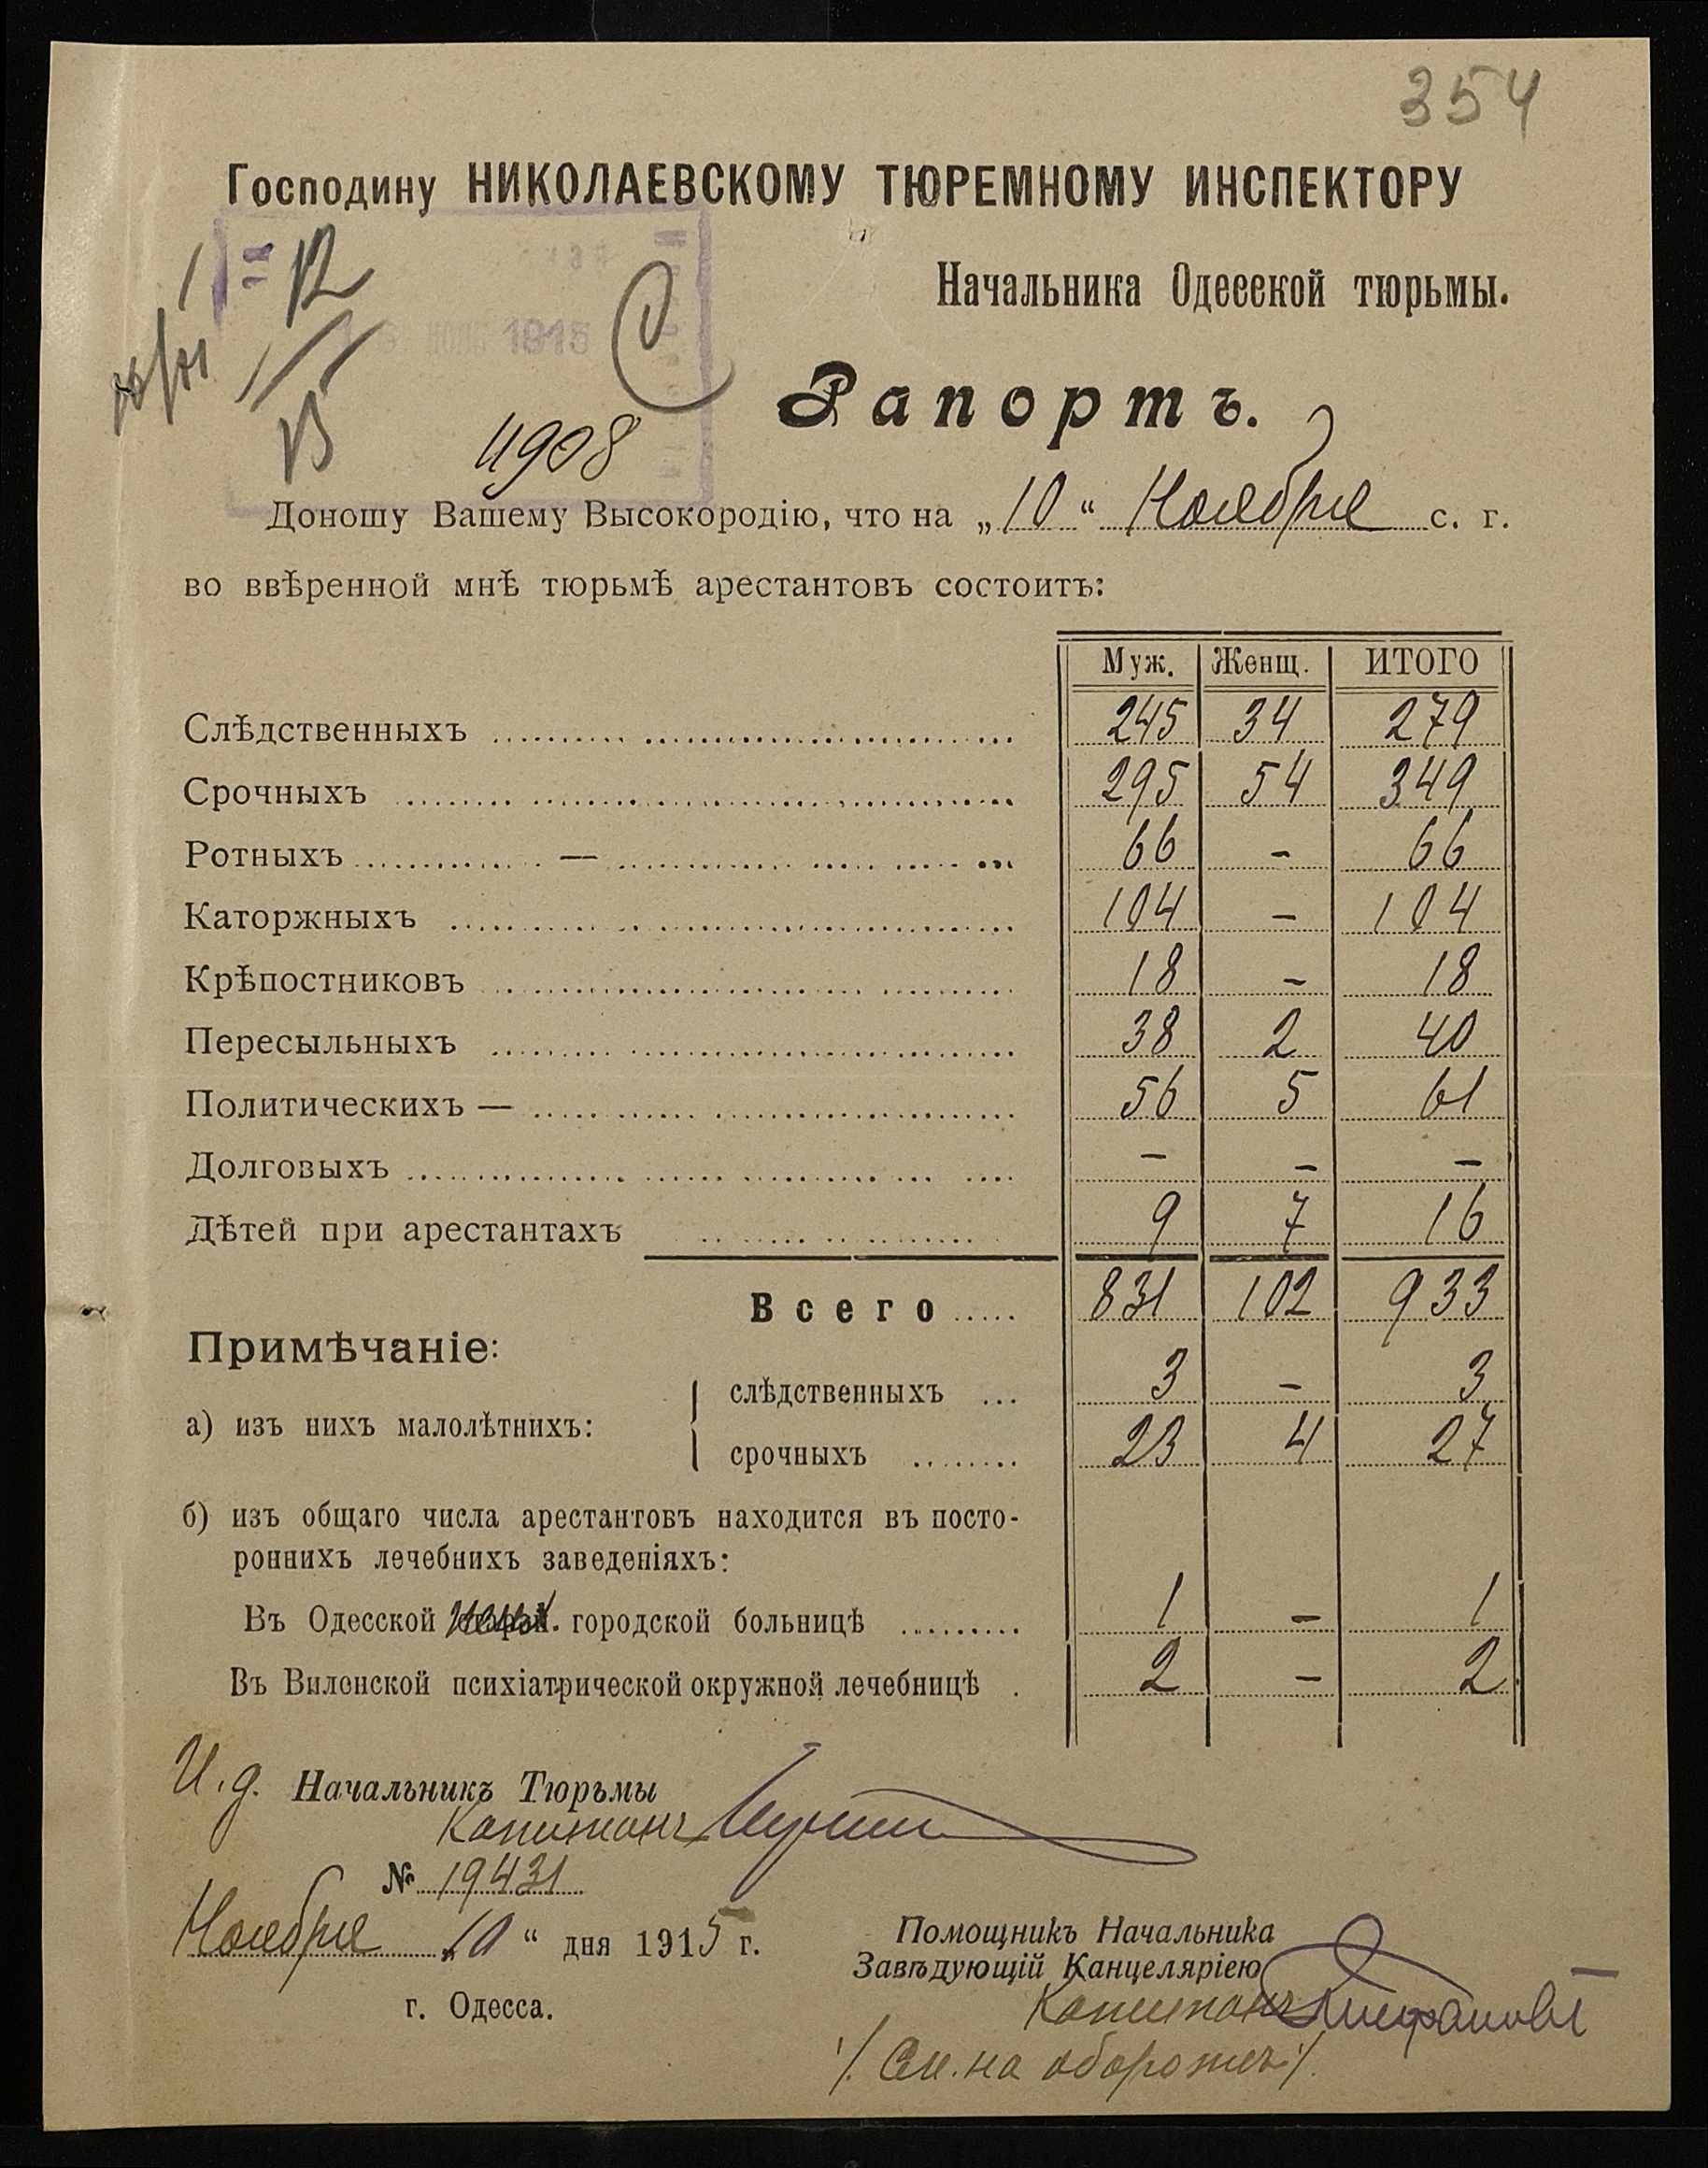 354
Господину НИКОЛАЕВСКОМУ ТЮРЕМНОМУ ИНСПЕКТОРУ
Начальника Одесской тюрьмы.
1915
Рапортъ.
4908
Доношу Вашему Высокородію, что на „10“ Ноября с. г.
во ввѣренной мнѣ тюрьмѣ арестантовъ состоитъ:
Муж. Женщ. ИТОГО
Слѣдственныхъ 245 34 279
Срочныхъ 295 54 349
Ротныхъ — 66 - 66
Каторжныхъ 104 - 104
Крѣпостниковъ 18 - 18
Пересыльныхъ 38 2 40
Политическихъ — 56 5 61
Долговыхъ - - -
Дѣтей при арестантахъ 9 7 16
Всего 831 102 933
Примѣчаніе:
а) изъ нихъ малолѣтнихъ:
слѣдственныхъ 3 - 3
срочныхъ 23 4 27
б) изъ общаго числа арестантовъ находится въ посто-
роннихъ лечебнихъ заведеніяхъ:
Въ Одесской городской больницѣ 1 - 1
Въ Виленской психіатрической окружной лечебницѣ 2 - 2
И. д. Начальникъ Тюрьмы
Капитанъ
№ 19431
Ноября „10“ дня 1915 г.
г. Одесса.
Помощникъ Начальника
Завѣдующій Канцеляріею
Капитанъ
/. См. на оборотѣ /.